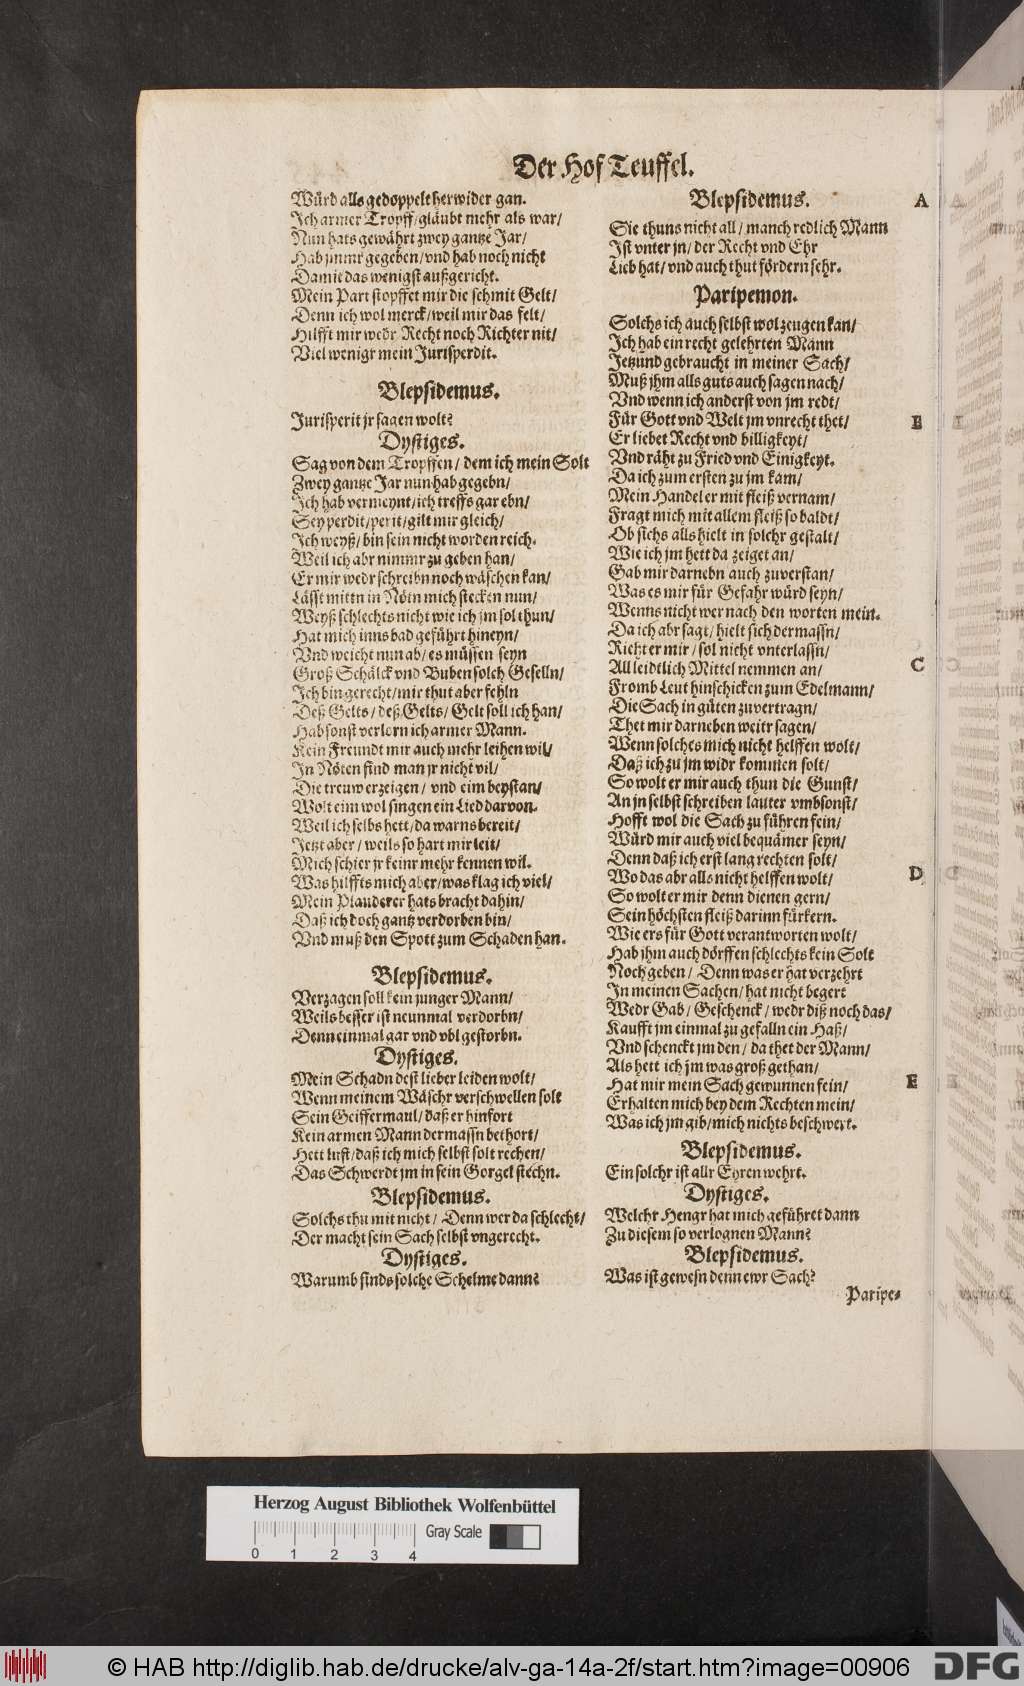 Der Hof Teuffel.
Würd alls gedoppelt herwider gan.
Ich armer Tropff/gläubt mehr als war/
Nun hats gewährt zwey gantze Jar/
Hab jmmr gegeben/vnd hab noch nicht
Damit das wenigst außgericht.
Mein Part stopffet mir die schmit Gelt/
Denn ich wol merck/weil mir das felt/
Hilfft mir wedr Recht noch Richter nit/
Viel wenigr mein Jurisperdit.
Blepsidemus.
Jurisperit jr sagen wolt?
Dystiges.
Sag von dem Tropffen/ dem ich mein Solt
Zwey gantze Jar nun hab gegebn/
Ich hab vermeynt/ich treffs gar ebn/
Sey perdit/perit/gilt mir gleich/
Ich weyß/ bin sein nicht worden reich.
Weil ich abr nimmr zu geben han/
Er mir wedr schreibn noch wäschen kan/
Lässt mittn in Nötn mich stecken nun/
Weyß schlechts nicht wie ich jm sol thun/
Hat mich inns bad geführt hineyn/
Vnd weicht nun ab/es müssen seyn
Groß Schälck vnd Buben solch Geselln/
Ich bin gerecht/mir thut aber fehln
Deß Gelts/ deß Gelts/ Gelt soll ich han/
Hab sonst verlorn ich armer Mann.
Kein Freundt mir auch mehr leihen wil/
In Nöten find man jr nicht vil/
Die treuw erzeigen/ vnd eim beystan/
Wolt eim wol singen ein Lied darvon.
Weil ich selbs hett/da warns bereit/
Jetzt aber/ weils so hart mir leit/
Mich schier jr keinr mehr kennen wil.
Was hilffts mich aber/was klag ich viel/
Mein Plauderer hats bracht dahin/
Daß ich doch gantz verdorben bin/
Vnd muß den Spott zum Schaden han.
Blepsidemus.
Verzagen soll kein junger Mann/
Weils besser ist neunmal verdorbn/
Denn einmal gar vnd vbl gestorbn.
Dystiges.
Mein Schadn dest lieber leiden wolt/
Wenn meinem Wäschr verschwellen solt
Sein Geiffermaul/daß er hinfort
Kein armen Mann dermassn bethort/
Hett lust/daß ich mich selbst solt rechen/
Das Schwerdt jm in sein Gorgel stechn.
Blepsidemus.
Solchs thu mit nicht/ Denn wer da schlecht/
Der macht sein Sach selbst vngerecht.
Dystiges.
Warumb sinds solche Schelme dann?
Blepsidemus.
A
Sie thuns nicht all/ manch redlich Mann
Ist vnter jn/ der Recht vnd Ehr
Lieb hat/ vnd auch thut fördern sehr.
Paripemon.
Solchs ich auch selbst wol zeugen kan/
Ich hab ein recht gelehrten Mann
Jetzund gebraucht in meiner Sach/
Muß jhm alls guts auch sagen nach/
Vnd wenn ich anderst von jm redt/
Für Gott vnd Welt jm vnrecht thet/
Er liebet Recht vnd billigkeyt/
Vnd räht zu Fried vnd Einigkeyt.
Da ich zum ersten zu jm kam/
Mein Handel er mit fleiß vernam/
Fragt mich mit allem fleiß so baldt/
Ob sichs alls hielt in solchr gestalt/
Wie ich jm hett da zeiget an/
Gab mir darnebn auch zuverstan/
Was es mir für Gefahr würd seyn/
Wenns nicht wer nach den worten mein.
Da ich abr sagt/ hielt sich dermassn/
Rieht er mir/ sol nicht vnterlassn/
C
All leidtlich Mittel nemmen an/
Fromb Leut hinschicken zum Edelmann/
Die Sach in güten zuvertragn/
Thet mir darneben weitr sagen/
Wenn solches mich nicht helffen wolt/
Daß ich zu jm widr kommen solt/
So wolt er mir auch thun die Gunst/
An jn selbst schreiben lauter vmbsonst/
Hofft wol die Sach zu führen fein/
Würd mir auch viel bequämer seyn/
Denn daß ich erst lang rechten solt/
Wo das abr alls nicht helffen wolt/
D
So wolt er mir denn dienen gern/
Sein höchsten fleiß darinn fürkern.
Wie ers für Gott verantworten wolt/
Hab jhm auch dörffen schlechts kein Solt
Noch geben/ Denn was er hat verzehrt
In meinen Sachen/ hat nicht begert
Wedr Gab/ Geschenck/ wedr diß noch das/
Kaufft jm einmal zu gefalln ein Haß/
Vnd schenckt jm den/ da thet der Mann/
Als hett ich jm was groß gethan/
Hat mir mein Sach gewunnen fein/
E
Erhalten mich bey dem Rechten mein/
Was ich jm gib/mich nichts beschwert.
Blepsidemus.
Ein solchr ist allr Eyren wehrt.
Dystiges.
Welchr Hengr hat mich geführet dann
Zu diesem so verlognen Mann?
Blepsidemus.
Was ist gewesn denn ewr Sach?
Paripe-
Herzog August Bibliothek Wolfenbüttel
Gray Scale
0 1 2 3 4
© HAB http://diglib.hab.de/drucke/alv-ga-14a-2f/start.htm?image=00906
DFG